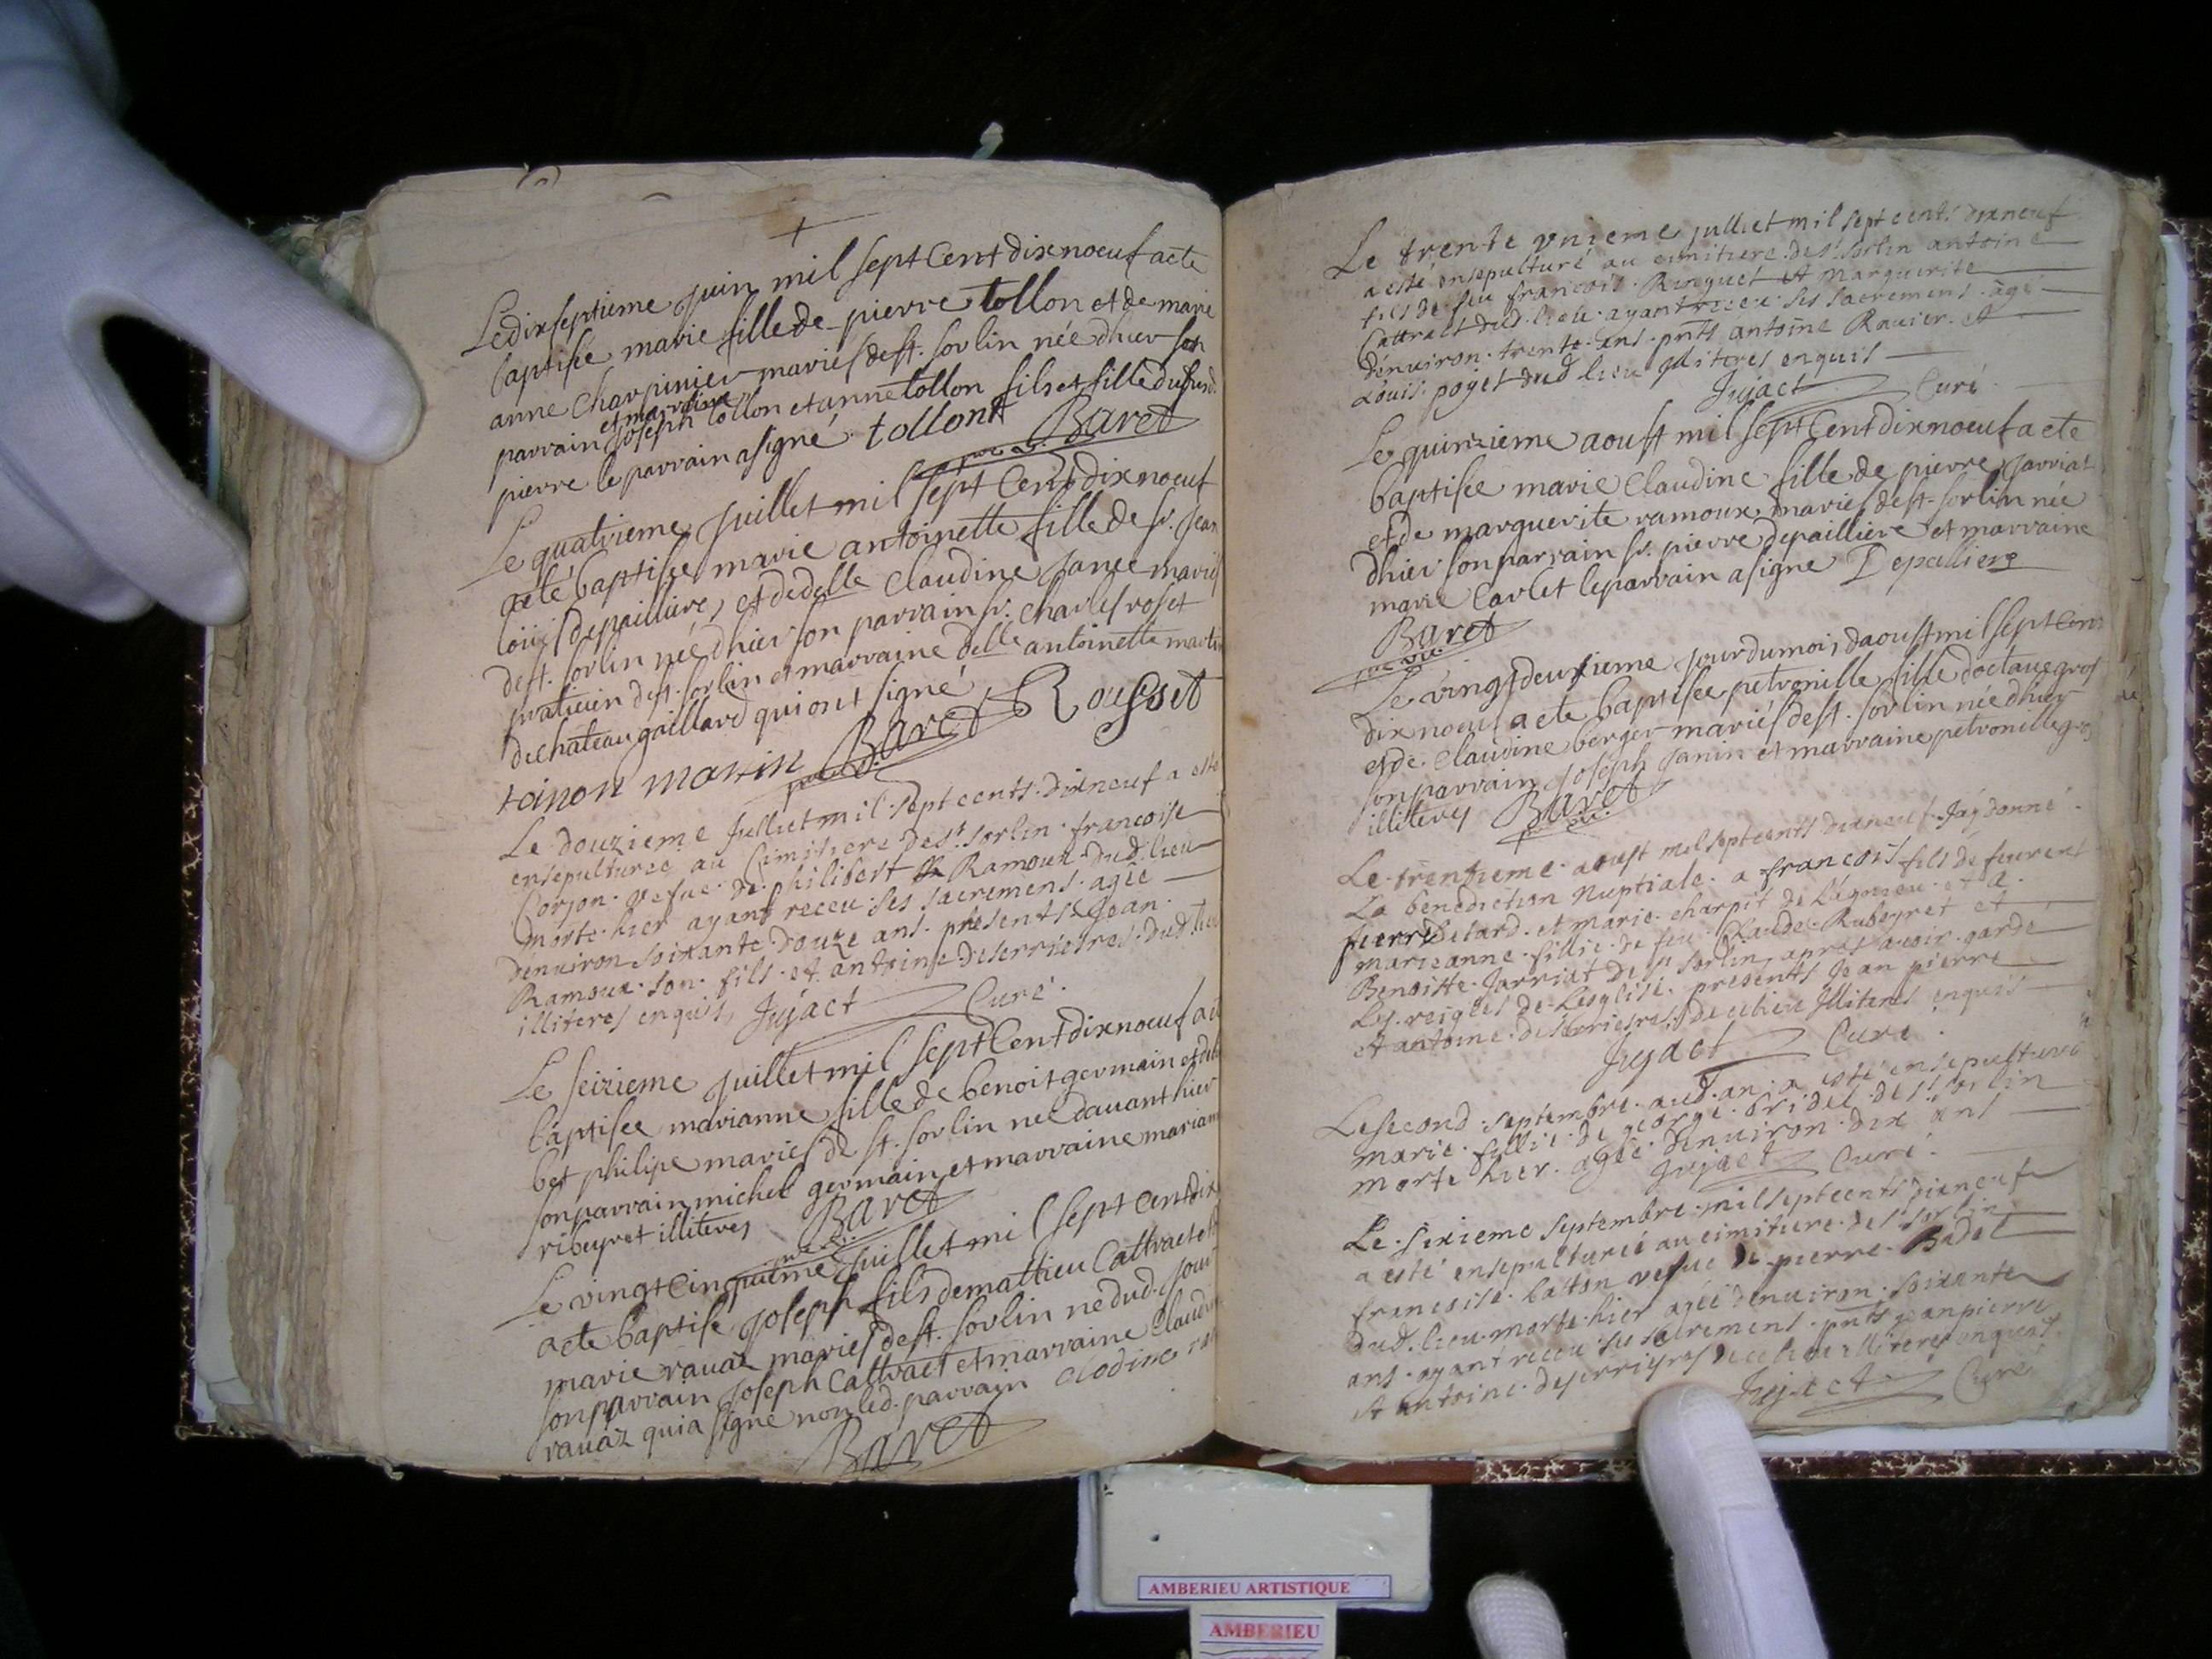 Le dixseptieme juin mil sept Cent dixnoeuf a ete
baptisée marie fille de pierre tollon et de marie
anne Charpinier mariés de st. sorlin née dhier son
et marraine
parrain joseph tollon et anne tollon fils et fille dud
pierre le parrain a signé tollont Baret
Le quatrieme juillet mil sept Cent dixnoeuf
a eté baptisée marie antoinette fille de sr. jean
loüis depailliere, et de delle Claudine janee mariés
de st. sorlin née dhier son parrain sr. Charles roset
praticien de st. sorlin et marraine delle antoinette martin
de chateau gaillard qui ont signé
toinon martin Baret Rousset
Le douzieme julliet mil sept cents dixneuf a esté
ensepulturee au Cimitiere de st sorlin francoise
Corjon vefue de philibert Ramoux dud lieu
morte hier ayant receu ses sacremens agée
dénuiron soixante douze ans presents Jean
Ramoux son fils et antoine deserrieres dud lieu
illiteres enquis Jujact Curé
Le seizieme juillet mil sept Cent dixnoeuf a eté
baptisée marianne fille de benoit germain et de
bet philipe mariés de st. sorlin née davant hier
son parrain michel germain et marraine mariann
ribeyret illiteres Baret
Le vingt cinquieme juillet mil sept Cent dix
a ete baptisé joseph fils de mattieu Cattraet et
marie rauaz mariés de st. sorlin né dud. jour
son parrain joseph Cattraet et marraine Claudine
rauaz qui a signé non led. parrain clodine
Baret
Le trente vnieme julliet mil sept cents dixneuf
a esté ensepulturé au cimitiere de st sorlin antoine
fils de feu francois Ringuet et marguerite
Cattraet dud. lieu ayant receu ses sacremens agé
dénuiron trente ans pnts antoine Rauier et
Louis poget dud lieu illiteres enquis
Jujact Curé
Le quinzieme aoust mil sept Cent dixnoeuf a ete
baptisée marie Claudine fille de pierre jarriat
et de marguerite ramoux mariés de st. sorlin née
dhier son parrain sr. pierre depailliere et marraine
marie Carlet le parrain a signé Depalliere
Baret
Le vingt deuxieme jour du mois daoust mil sept Cent
dixnoeuf a ete baptisée petronille fille doctaue gros
et de Claudine berger mariés de st. sorlin née dhier
son parrain joseph janin et marraine petronille gros
illiteres Baret
Le trentieme aoust mil septcents dixneuf Jay donné
La benediction Nuptiale a francois fils de feu rené
pierre et marie charpit de Lagnieu et a
marieanne fillie de feu Claude Rubeyret et
Benoiste Jarriat de st sorlin apres auoir gardé
Les reigles de Lesglise presents Jean pierre
et antoine deserrieres de ce lieu Illiteres enquis
Jujact Curé
Le second septembre aud. an a esté ensepulturé
marie fillie de george bridel de st sorlin
morte hier agée denuiron dix ans
Jujact Curé
Le sixieme septembre mil septcents dixneuf
a esté ensepulturée au cimitiere de st sorlin
francoise baton vefue de pierre Badel
dud. lieu morte hier agée denuiron soixante
ans ayant receu ses sacremens pnts jeanpierre
et antoine deserrieres de ce lieu illiteres enquis
Jujact Curé
AMBERIEU ARTISTIQUE
AMBERIEU